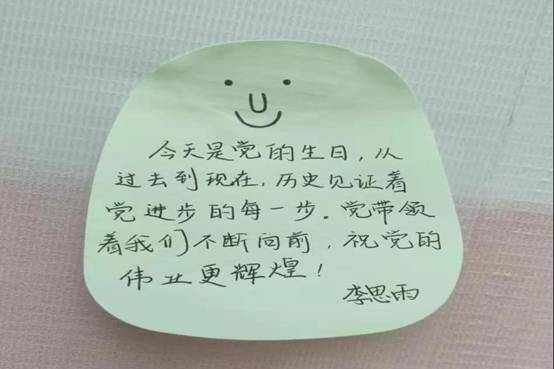 今天是党的生日，从
过去到现在，历史见证着
党进步的每一步。党带领
着我们不断向前，祝党的
伟业更辉煌！
李思雨